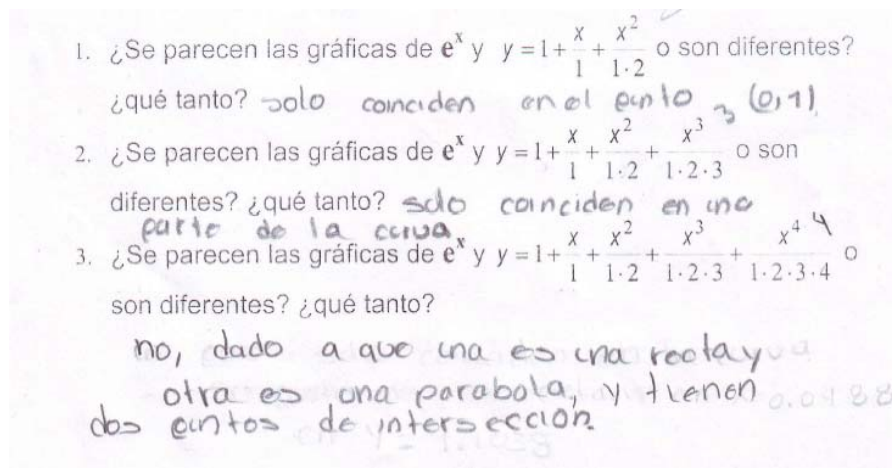 1. ¿Se parecen las gráficas de e^x y y = 1 + x/1 + x^2/(1·2) o son diferentes?
¿qué tanto? solo coinciden en el punto (0,1)
2. ¿Se parecen las gráficas de e^x y y = 1 + x/1 + x^2/(1·2) + x^3/(1·2·3) o son
diferentes? ¿qué tanto? solo coinciden en una
parte de la curva
3. ¿Se parecen las gráficas de e^x y y = 1 + x/1 + x^2/(1·2) + x^3/(1·2·3) + x^4/(1·2·3·4) 4 o
son diferentes? ¿qué tanto?
no, dado a que una es una recta y
otra es una parabola, y tienen
dos puntos de intersección